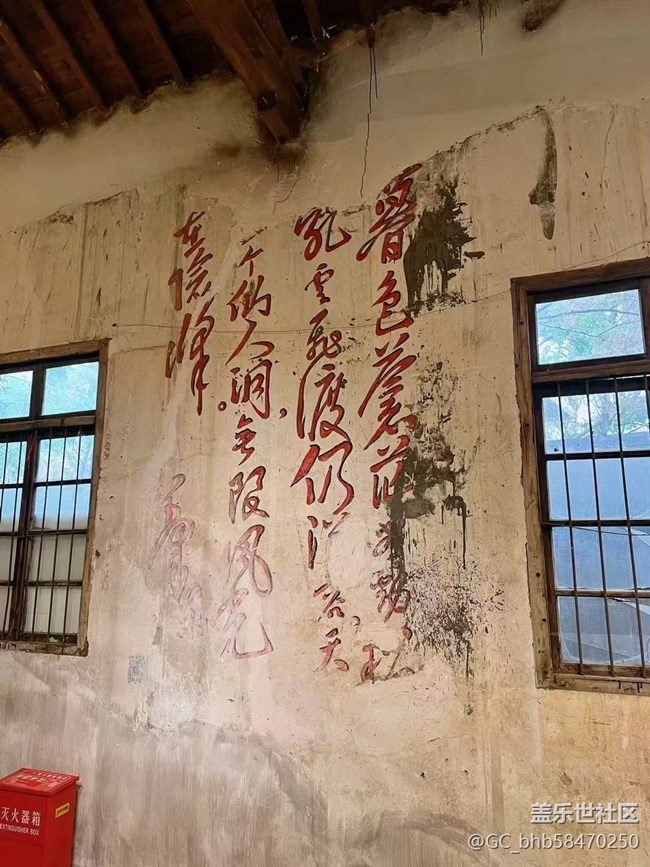 暮色蒼茫看劲松
乱云飛渡仍從容天
一个仙人洞，無限風光
在險峰。
毛澤東
灭火器箱
EXTINGUISHER BOX
盖乐世社区
@GC_bhb58470250